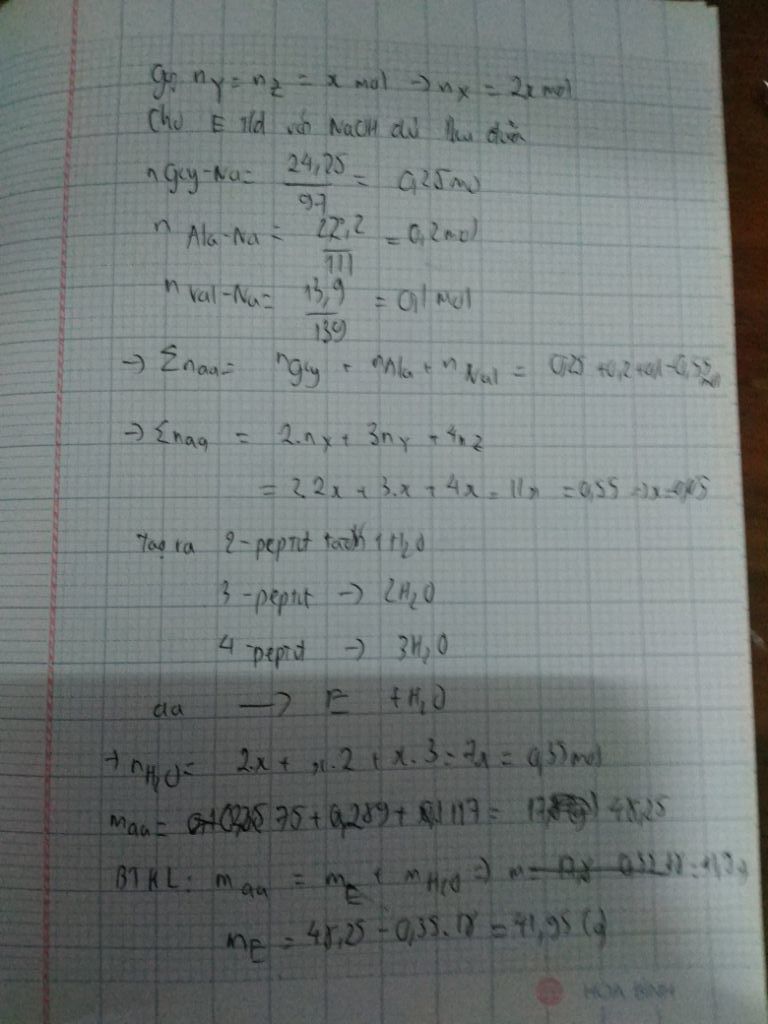 Gọi nY = nZ = x mol → nX = 2x mol
Cho E t/d với NaOH dư thu được
nGly-Na = 24,25/97 = 0,25mol
n Ala-Na = 22,2/111 = 0,2mol
n Val-Na = 13,9/139 = 0,1 mol
→ Σnaa = nGly + nAla + nVal = 0,25 + 0,2 + 0,1 = 0,55 mol
→ Σnaa = 2.nX + 3nY + 4nZ
= 2.2x + 3.x + 4x = 11x = 0,55 → x = 0,05
Tạo ra 2-peptit tách 1 H2O
3-peptit → 2H2O
4-peptit → 3H2O
aa → E + H2O
→ nH2O = 2x + x.2 + x.3 = 7x = 0,35mol
maa = 75 + 0,2.89 + 0,1 117 = 48,25
BTKL: maa = mE + mH2O ⇒
mE = 48,25 - 0,35.18 = 41,95 (g)
HOA BINH